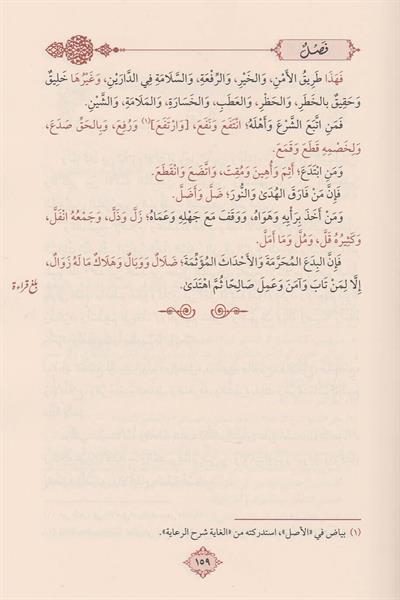 فَصْلٌ
فَهَذَا طَرِيقُ الأَمْنِ، وَالخَيْرِ، وَالرِّفْعَةِ، وَالسَّلَامَةِ فِي الدَّارَيْنِ، وَغَيْرُهَا خَلِيقٌ
وَحَقِيقٌ بِالخَطَرِ، وَالحَظْرِ، وَالعَطَبِ، وَالخَسَارَةِ، وَالمَلَامَةِ، وَالشَّيْنِ.
فَمَنِ اتَّبَعَ الشَّرْعَ وَأَهْلَهُ؛ انْتَفَعَ وَنَفَعَ، [وَارْتَفَعَ](١) وَرُفِعَ، وَبِالحَقِّ صَدَعَ،
وَلِخَصْمِهِ قَطَعَ وَقَمَعَ.
وَمَنِ ابْتَدَعَ؛ أَثِمَ وَأُهِينَ وَمُقِتَ، وَاتَّضَعَ وَانْقَطَعَ.
فَإِنَّ مَنْ فَارَقَ الهُدَىٰ وَالنُّورَ؛ ضَلَّ وَأَضَلَّ.
وَمَنْ أَخَذَ بِرَأْيِهِ وَهَوَاهُ، وَوَقَفَ مَعَ جَهْلِهِ وَعَمَاهُ؛ زَلَّ وَذَلَّ، وَجَمْعُهُ انْفَلَّ،
وَكَثِيرُهُ قَلَّ، وَمُلَّ وَمَا أَمَلَّ.
فَإِنَّ البِدَعَ المُحَرَّمَةَ وَالأَحْدَاثَ المُؤَثَّمَةَ؛ ضَلَالٌ وَوَبَالٌ وَهَلَاكٌ مَا لَهُ زَوَالٌ،
إِلَّا لِمَنْ تَابَ وَآمَنَ وَعَمِلَ صَالِحًا ثُمَّ اهْتَدَىٰ.
بلغ قراءة
(١) بياض في «الأصل»، استدركته من «الغاية شرح الرعاية».
١٥٩